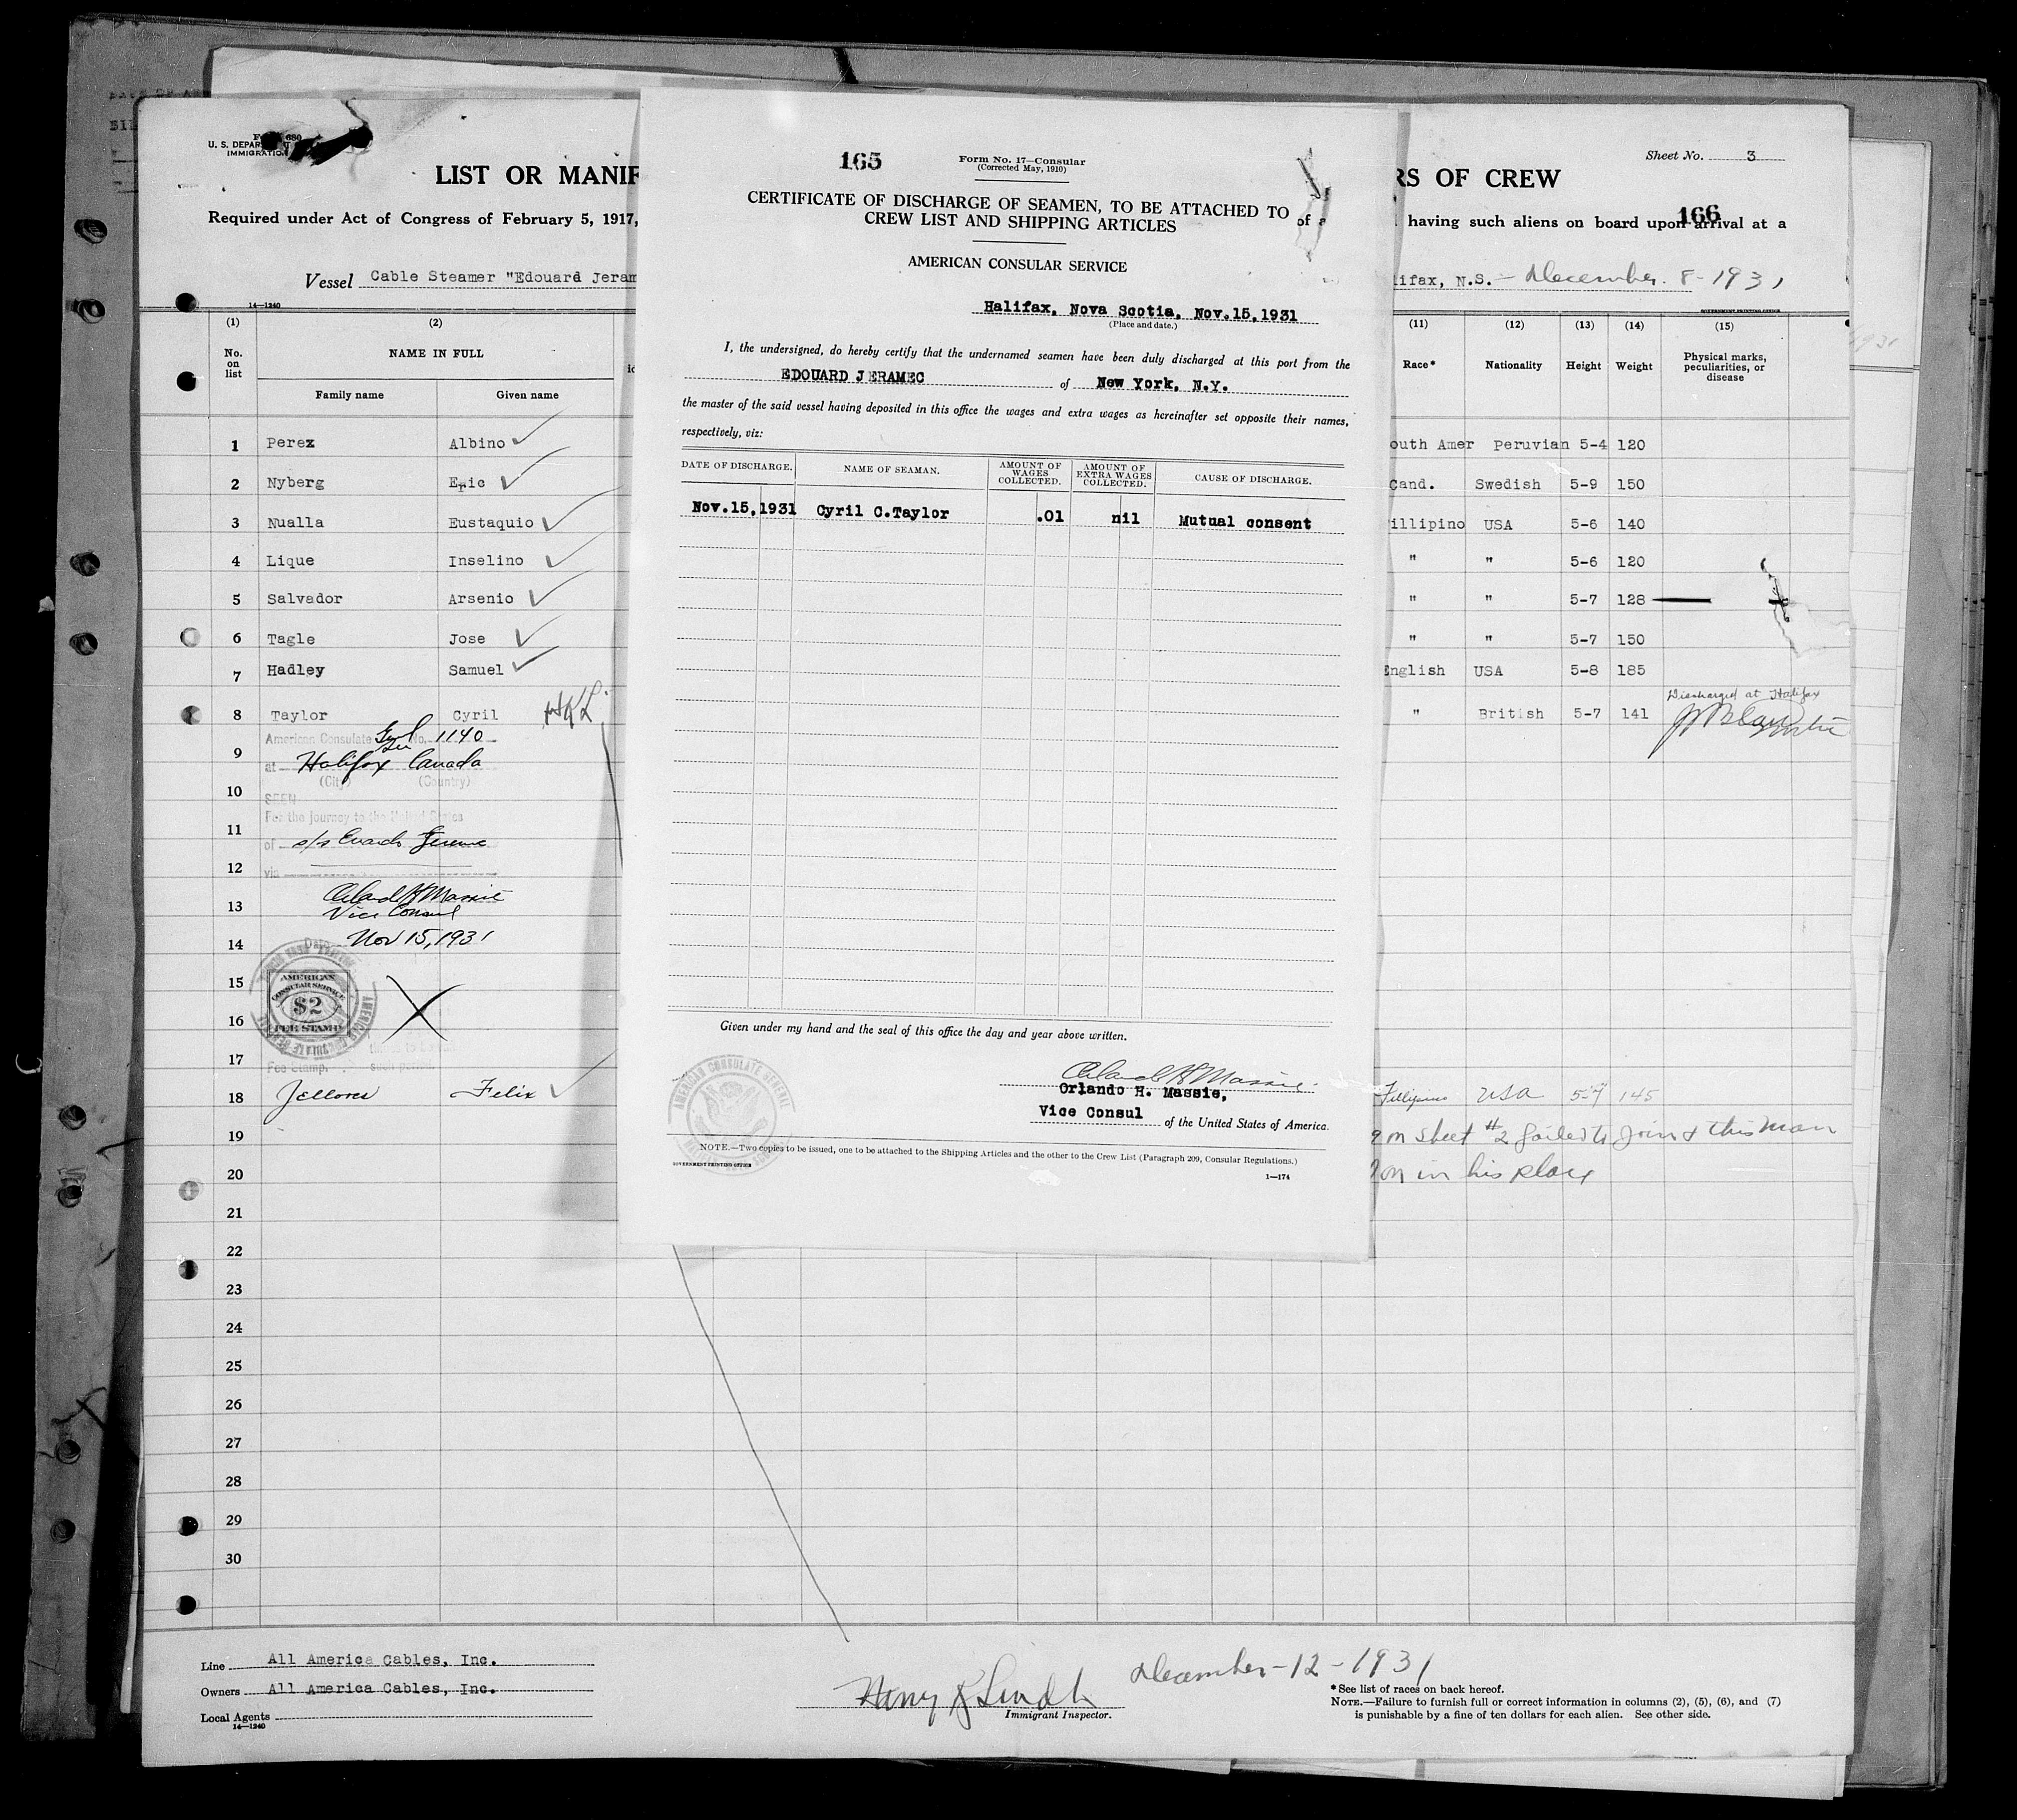 U. S. DEPAR
IMMIGRATION
LIST OR MANIF
RS OF CREW
Sheet No. 3
166
Required under Act of Congress of February 5, 1917,
having such aliens on board upon arrival at a
Vessel Cable Steamer "Edouard Jeram
lifax, N.S. - December 8 - 1931
14—1240
GOVERNMENT PRINTING OFFICE
(1) (2) (11) (12) (13) (14) (15)
No. on list
NAME IN FULL
Family name Given name
Race* Nationality Height Weight Physical marks, peculiarities, or disease
1 Perez Albino outh Amer Peruvian 5-4 120
2 Nyberg Eric Cand. Swedish 5-9 150
3 Nualla Eustaquio illipino USA 5-6 140
4 Lique Inselino " " 5-6 120
5 Salvador Arsenio " " 5-7 128
6 Tagle Jose " " 5-7 150
7 Hadley Samuel English USA 5-8 185
8 Taylor Cyril " British 5-7 141 Discharged at Halifax
American Consulate Gen No. 1140
9
at Halifax Canada
(City) (Country)
10
SEEN
For the journey to the United States
11
of s/s
12
via
13
Vice Consul
14
Date Nov 15, 1931
15
AMERICAN CONSULAR SERVICE
$2
FEE STAMP
16
17
Fee Stamp.
18 Felix USA 5-7 145
19
on sheet #2 failed to join & this man
20
on in his place
21
22
23
24
25
26
27
28
29
30
Line All America Cables, Inc.
Owners All America Cables, Inc.
Local Agents
14—1240
December-12-1931
Immigrant Inspector.
*See list of races on back hereof.
NOTE.—Failure to furnish full or correct information in columns (2), (5), (6), and (7)
is punishable by a fine of ten dollars for each alien. See other side.
165
Form No. 17—Consular
(Corrected May, 1910)
CERTIFICATE OF DISCHARGE OF SEAMEN, TO BE ATTACHED TO
CREW LIST AND SHIPPING ARTICLES
AMERICAN CONSULAR SERVICE
Halifax, Nova Scotia, Nov.15,1931
(Place and date.)
I, the undersigned, do hereby certify that the undernamed seamen have been duly discharged at this port from the
EDOUARD JERAMEC of New York, N.Y.
the master of the said vessel having deposited in this office the wages and extra wages as hereinafter set opposite their names,
respectively, viz:
DATE OF DISCHARGE. NAME OF SEAMAN. AMOUNT OF WAGES COLLECTED. AMOUNT OF EXTRA WAGES COLLECTED. CAUSE OF DISCHARGE.
Nov.15,1931 Cyril C.Taylor .01 nil Mutual consent
Given under my hand and the seal of this office the day and year above written.
Orlando H. Massie
Orlando H. Massie,
Vice Consul of the United States of America.
AMERICAN CONSULATE GENERAL
NOTE.—Two copies to be issued, one to be attached to the Shipping Articles and the other to the Crew List (Paragraph 209, Consular Regulations.)
GOVERNMENT PRINTING OFFICE
1—174